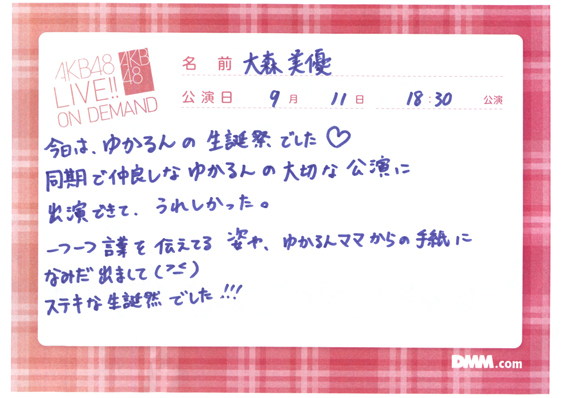 AKB48
LIVE!!
ON DEMAND
AKB
48
名 前 大森美優
公演日 9月 11日 18:30 公演
今日は、ゆかるんの生誕祭でした♡
同期で仲良しなゆかるんの大切な公演に
出演できて、うれしかった。
一つ一つ言葉を伝えてる姿や、ゆかるんママからの手紙に
なみだ出まして(><)
ステキな生誕祭でした!!!
DMM.com